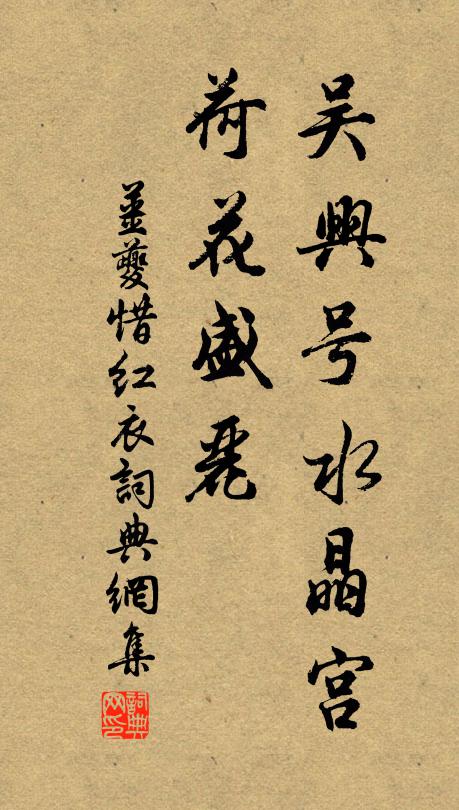 吴興号水晶宫
荷花盛麗
姜夔惜红衣詞典網集
詞典網印